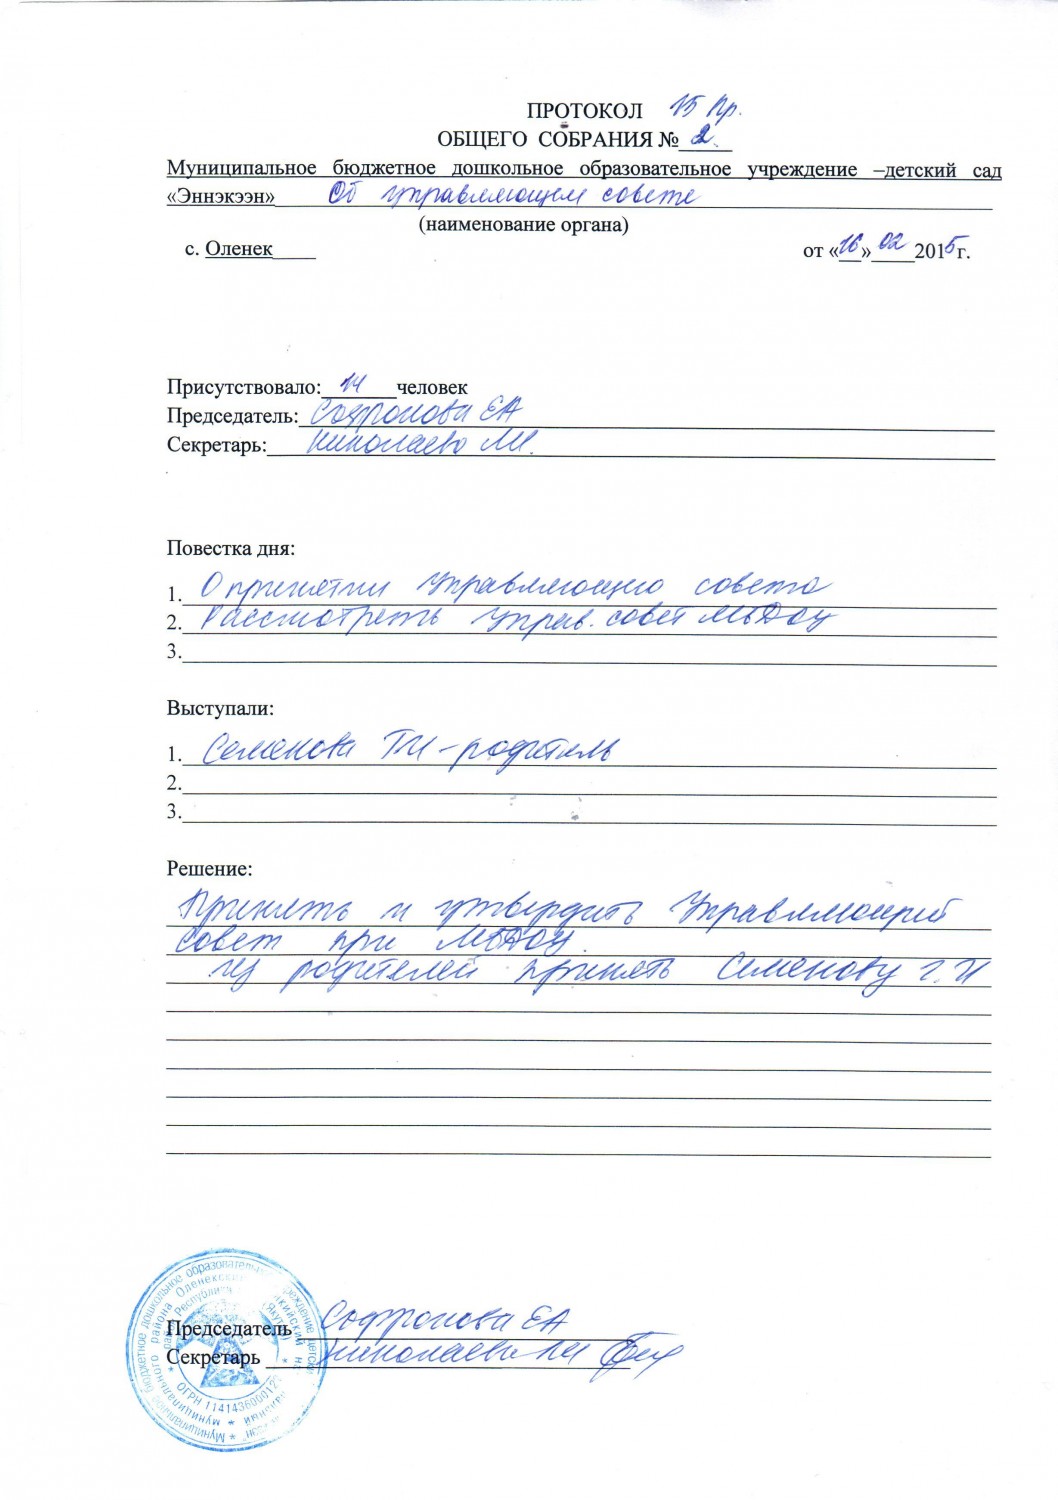 ПРОТОКОЛ 15 Пр.
ОБЩЕГО СОБРАНИЯ № 2.
Муниципальное бюджетное дошкольное образовательное учреждение –детский сад
«Эннэкээн» Об управляющем совете
(наименование органа)
с. Оленек от «16» 02 2015 г.
Присутствовало: 14 человек
Председатель: Софронова ЕА
Секретарь: Николаева М.И.
Повестка дня:
1. О принятии Управляющего совета
2. Рассмотреть Управ. совет МБДОУ
3.
Выступали:
1. Семенова ТИ - родитель
2.
3.
Решение:
Принять и утвердить Управляющий
совет при МБДОУ.
из родителей принять Семенову Г.И
Председатель Софронова ЕА
Секретарь Николаева МИ
ОГРН 114143600012